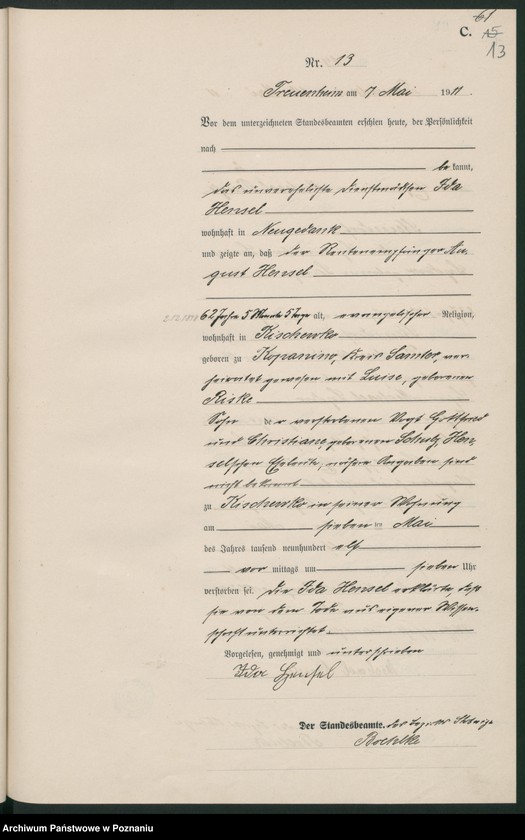 61
C. 15
13
Nr. 13
Treuenheim am 7. Mai 1911.
Vor dem unterzeichneten Standesbeamten erschien heute, der Persönlichkeit
nach
bekannt,
das unverehelichte Dienstmädchen Ida
Hensel
wohnhaft in Neugedank
und zeigte an, daß der Rentenempfänger Au-
gust Hensel
62 Jahre 5 Monate 5 Tage alt, evangelischer Religion,
wohnhaft in Kischewko
geboren zu Kopanino, Kreis Samter, ver-
heiratet gewesen mit Luise, geborenen
Riske
Sohn der verstorbenen Vogt Gottfried
und Christiane geborenen Schulz, Hen-
selschen Eheleute, nähere Angaben sind
nicht bekannt
zu Kischewko in seiner Wohnung
am sieben ten Mai
des Jahres tausend neunhundert elf
vor mittags um sieben Uhr
verstorben sei. Die Ida Hensel erklärte, daß
sie von dem Tode aus eigener Wissen-
schaft unterrichtet.
Vorgelesen, genehmigt und unterschrieben
Ida Hensel
Der Standesbeamte.
Archiwum Państwowe w Poznaniu